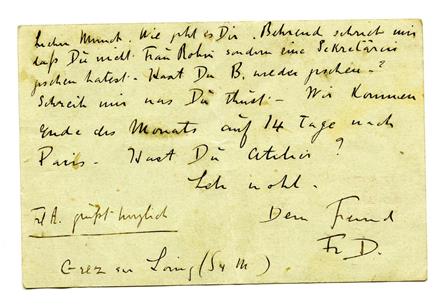 Lieber Munch. Wie geht es Dir. Behrend schreibt mir
daß Du nicht Frau Rohn sondern eine Sekretärin
gesehen hatest. Hast Du B. wieder gesehen?
Schreib mir was Du thust. Wir kommen
Ende des Monats auf 14 Tage nach
Paris. Hast Du Atelier?
Leb wohl.
Frl A. grüßt herzlich
Dein Freund
Fr D.
Grez sur Loing (S & M)